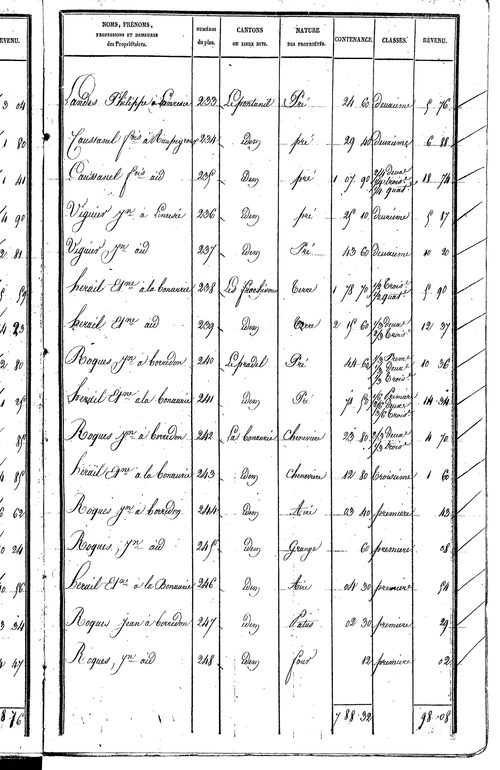 REVENU.
3 04
1 80
1 41
4 90
2 81
5 59
4 23
2 80
1 25
85
4 85
6 62
0 24
0 56
3 34
4 47
8.76
NOMS, PRÉNOMS, PROFESSIONS ET DEMEURES des Propriétaires. NUMÉROS du plan. CANTONS OU LIEUX DITS. NATURE DES PROPRIÉTÉS. CONTENANCE. CLASSES. REVENU.
Landes Philippe à 233 Pré 24 60 deuxième 5 76
Caussanel fois à 234 idem pré 29 40 deuxième 6 88
Caussanel fois aid 235 idem pré 1 07 90 2/4 deux 1/4 trois e 1/4 quat e 18 74
Viguier Jn à 236 idem pré 25 10 deuxième 5 87
Viguier Jn aid 237 idem Pré 43 60 deuxième 10 20
herail Etne à la bonaurie 238 Les Terre 1 78 70 1/2 Trois e 1/2 quat e 5 90
herail Etne aid 239 idem Terre 2 15 60 1/3 deux 2/3 Trois 12 37
Roques Jn à borredon 240 Le pradel Pré 44 60 1/3 Prem 1/3 deux 1/3 Trois 10 36
herail Etne à la bonaurie 241 idem Pré 71 50 1/6 Première 2/6 deux 3/6 Trois 14 34
Roques Jn à borredon 242 La bonaurie Cheneviere 23 80 2/3 deux 1/3 Trois 4 70
herail Etne à la bonaurie 243 idem Cheneviere 12 80 troisième 1 60
Roques Jn à borredon 244 idem Aire 03 40 première 43
Roques, Jn aid 245 idem Grange 60 première 08
herail Etne à la Bonaurie 246 idem Aire 04 30 première 54
Roques Jean à borredon 247 idem Patus 02 30 première 29
Roques, Jn aid 248 idem four 12 première 02
7 88.32 98.08